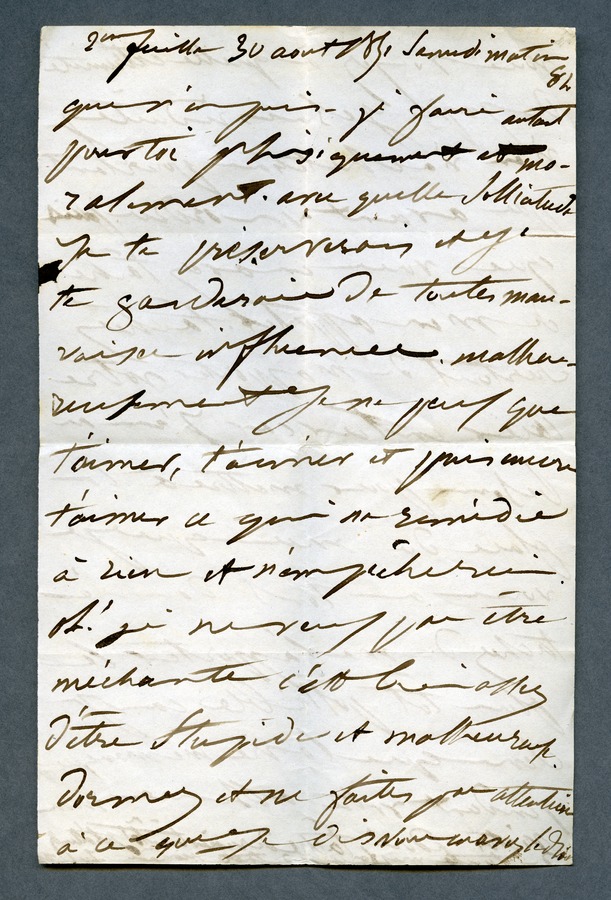 2ème feuille 30 août 1851 Samedi matin
8h
que n'en puis-je faire autant
pour toi phisiquement et mo-
ralement. avec quelle sollicitude
Je te préserverais et je
te garderais de toutes mau-
vaises influences. malheu-
reusement Je ne peux que
t'aimer, t'aimer et puis encore
t'aimer ce qui ne remédie
à rien et n'empêche rien.
Oh! je ne veux pas être
méchante c'est bien assez
d'être Stupide et malheureuse.
Dormez et ne faites pas attention
à ce que je dis vous avez le droit